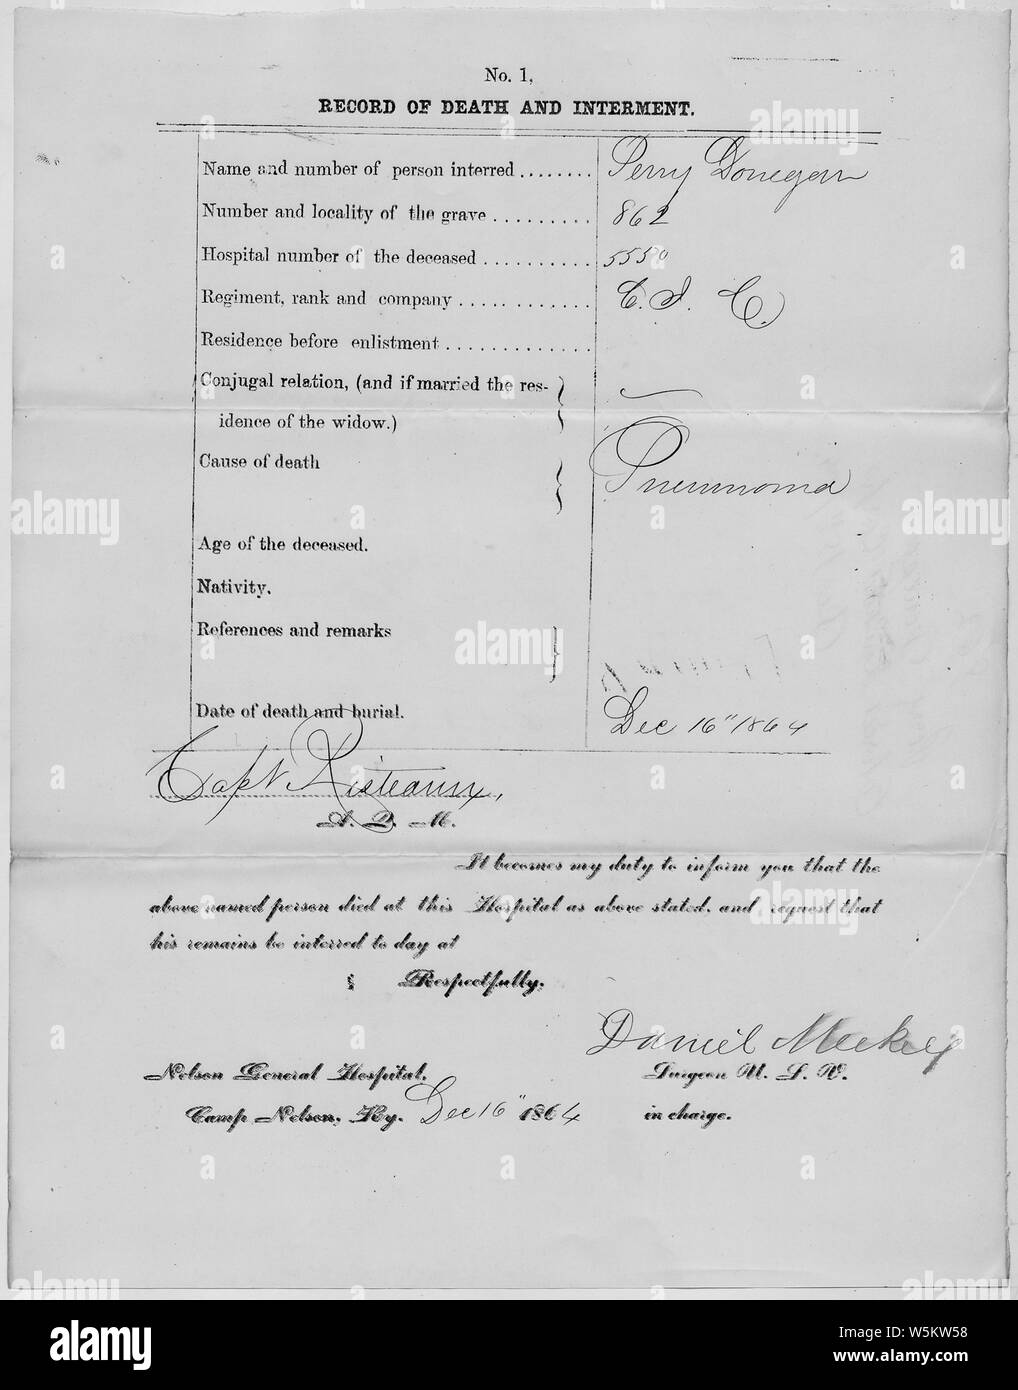 No. 1,
RECORD OF DEATH AND INTERMENT.
Name and number of person interred ........ Perry Donegan
Number and locality of the grave .......... 862
Hospital number of the deceased .......... 5550
Regiment, rank and company ............ C.
Residence before enlistment .............
Conjugal relation, (and if married the res-
idence of the widow.)
Cause of death Pneumonia
Age of the deceased.
Nativity.
References and remarks
Date of death and burial. Dec 16" 1864
Capt
A. Q. M.
It becomes my duty to inform you that the
above named person died at this Hospital as above stated, and request that
his remains be interred to day at
Respectfully,
Daniel
Nelson General Hospital, Surgeon U. S. V.
Camp Nelson, Ky. Dec 16" 1864 in charge.
alamy
alamy
Image ID: W5KW58
www.alamy.com